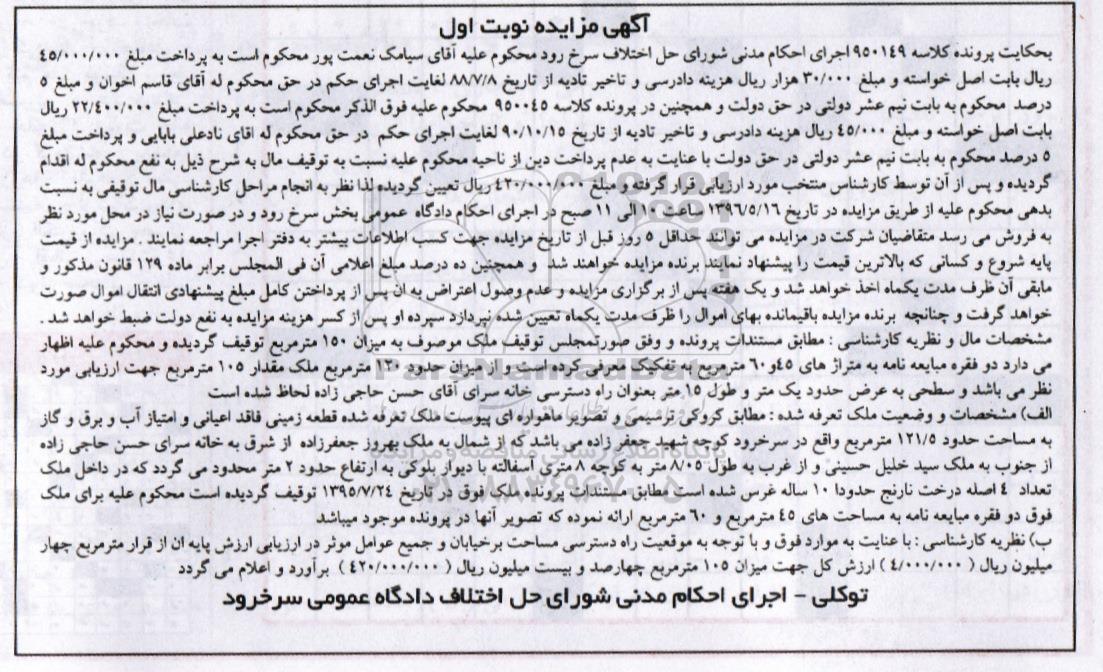 آگهی مزایده نوبت اول
بحکایت پرونده کلاسه ۹۵۰۱۴۹ اجرای احکام مدنی شورای حل اختلاف سرخ رود محکوم علیه آقای سیامک نعمت پور محکوم است به پرداخت مبلغ ۴۵/۰۰۰/۰۰۰
ریال بابت اصل خواسته و مبلغ ۳۰/۰۰۰ هزار ریال هزینه دادرسی و تاخیر تادیه از تاریخ ۸۸/۷/۸ لغایت اجرای حکم در حق محکوم له آقای قاسم اخوان و مبلغ ۵
درصد محکوم به بابت نیم عشر دولتی در حق دولت و همچنین در پرونده کلاسه ۹۵۰۰۴۵ محکوم علیه فوق الذکر محکوم است به پرداخت مبلغ ۲۲/۴۰۰/۰۰۰ ریال
بابت اصل خواسته و مبلغ ۴۵/۰۰۰ ریال هزینه دادرسی و تاخیر تادیه از تاریخ ۹۰/۱۰/۱۵ لغایت اجرای حکم در حق محکوم له اقای نادعلی بابایی و پرداخت مبلغ
۵ درصد محکوم به بابت نیم عشر دولتی در حق دولت با عنایت به عدم پرداخت دین از ناحیه محکوم علیه نسبت به توقیف مال به شرح ذیل به نفع محکوم له اقدام
گردیده و پس از آن توسط کارشناس منتخب مورد ارزیابی قرار گرفته و مبلغ ۴۲۰/۰۰۰/۰۰۰ ریال تعیین گردیده لذا نظر به انجام مراحل کارشناسی مال توقیفی به نسبت
بدهی محکوم علیه از طریق مزایده در تاریخ ۱۳۹۶/۵/۱۶ ساعت ۱۰ الی ۱۱ صبح در اجرای احکام دادگاه عمومی بخش سرخ رود و در صورت نیاز در محل مورد نظر
به فروش می رسد متقاضیان شرکت در مزایده می توانند حداقل ۵ روز قبل از تاریخ مزایده جهت کسب اطلاعات بیشتر به دفتر اجرا مراجعه نمایند . مزایده از قیمت
پایه شروع و کسانی که بالاترین قیمت را پیشنهاد نمایند برنده مزایده خواهند شد و همچنین ده درصد مبلغ اعلامی آن فی المجلس برابر ماده ۱۲۹ قانون مذکور و
مابقی آن ظرف مدت یکماه اخذ خواهد شد و یک هفته پس از برگزاری مزایده و عدم وصول اعتراض به ان پس از پرداختن کامل مبلغ پیشنهادی انتقال اموال صورت
خواهد گرفت و چنانچه برنده مزایده باقیمانده بهای اموال را ظرف مدت یکماه تعیین شده نپردازد سپرده او پس از کسر هزینه مزایده به نفع دولت ضبط خواهد شد .
مشخصات مال و نظریه کارشناسی : مطابق مستندات پرونده و وفق صورتمجلس توقیف ملک موصوف به میزان ۱۵۰ مترمربع توقیف گردیده و محکوم علیه اظهار
می دارد دو فقره مبایعه نامه به متراژ های ۴۵و۶۰ مترمربع به تفکیک معرفی کرده است و از میزان حدود ۱۲۰ مترمربع ملک مقدار ۱۰۵ مترمربع جهت ارزیابی مورد
نظر می باشد و سطحی به عرض حدود یک متر و طول ۱۵ متر بعنوان راه دسترسی خانه سرای آقای حسن حاجی زاده لحاظ شده است
الف) مشخصات و وضعیت ملک تعرفه شده : مطابق کروکی ترسیمی و تصویر ماهواره ای پیوست ملک تعرفه شده قطعه زمینی فاقد اعیانی و امتیاز آب و برق و گاز
به مساحت حدود ۱۲۱/۵ مترمربع واقع در سرخرود کوچه شهید جعفر زاده می باشد که از شمال به ملک بهروز جعفرزاده از شرق به خانه سرای حسن حاجی زاده
از جنوب به ملک سید خلیل حسینی و از غرب به طول ۸/۰۵ متر به کوچه ۸ متری آسفالته با دیوار بلوکی به ارتفاع حدود ۲ متر محدود می گردد که در داخل ملک
تعداد ۴ اصله درخت نارنج حدودا ۱۰ ساله غرس شده است مطابق مستندات پرونده ملک فوق در تاریخ ۱۳۹۵/۷/۲۴ توقیف گردیده است محکوم علیه برای ملک
فوق دو فقره مبایعه نامه به مساحت های ۴۵ مترمربع و ۶۰ مترمربع ارائه نموده که تصویر آنها در پرونده موجود میباشد
ب) نظریه کارشناسی : با عنایت به موارد فوق و با توجه به موقعیت راه دسترسی مساحت برخیابان و جمیع عوامل موثر در ارزیابی ارزش پایه ان از قرار مترمربع چهار
میلیون ریال ( ۴/۰۰۰/۰۰۰ ) ارزش کل جهت میزان ۱۰۵ مترمربع چهارصد و بیست میلیون ریال ( ۴۲۰/۰۰۰/۰۰۰ ) برآورد و اعلام می گردد
توکلی - اجرای احکام مدنی شورای حل اختلاف دادگاه عمومی سرخرود